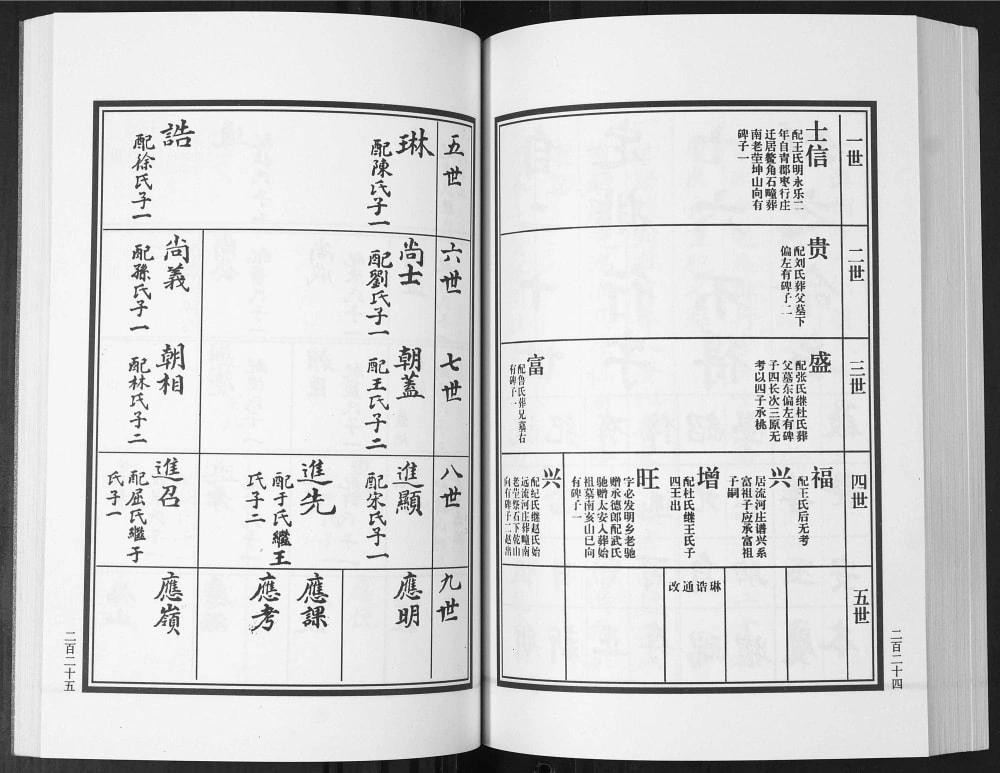 一世
士信
配王氏明永乐二
年自青郡枣行庄
迁居鳌角石疃葬
南老茔坤山向有
碑子一
二世
贵
配刘氏葬父墓下
偏左有碑子二
三世
盛
配张氏继杜氏葬
父墓东偏左有碑
子四长次三原无
考以四子承桃
富
配鲁氏葬兄墓右
有碑子一
四世
福
配王氏后无考
兴
居流河庄谱兴系
富祖子应承富祖
子嗣
增
配杜氏继王氏子
四王出
旺
字必发明乡老驰
赠承德郎配武氏
驰赠太安人葬始
祖墓南亥山巳向
有碑子一
兴
配纪氏继赵氏始
远流河庄葬疃南
老茔祭石下乾山
向有碑子二赵出
五世
琳诰通改
二百二十四
五世
琳
配陳氏子一
誥
配徐氏子一
六世
尚士
配劉氏子一
尚義
配孫氏子一
七世
朝蓋
配王氏子二
朝相
配林氏子二
八世
進顯
配宋氏子一
進先
配于氏繼王
氏子二
進召
配屈氏繼于
氏子一
九世
應明
應課
應考
應嶺
二百二十五